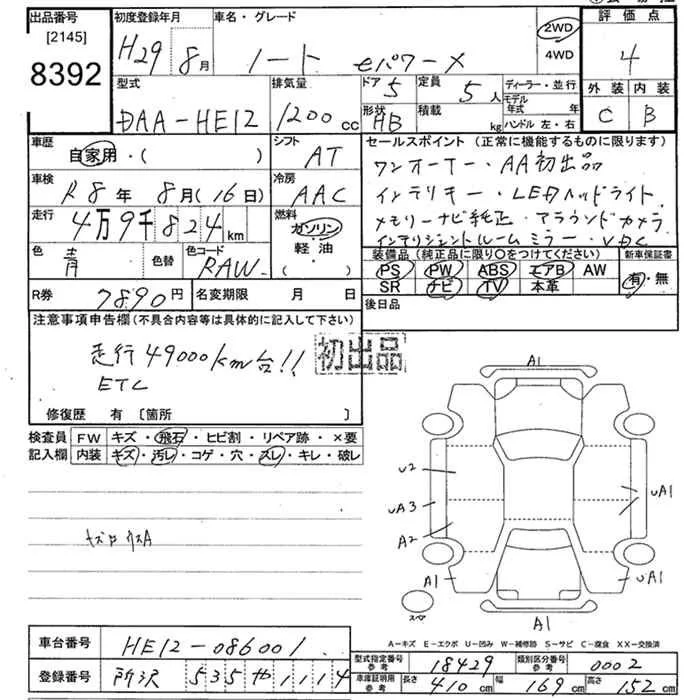 出品番号
[2145]
8392
初度登録年月
H29年 8月
車名・グレード
ノート eパワーメ
2WD
4WD
評価点
4
外装 内装
C B
型式
DAA-HE12
排気量
1200cc
ドア 5
定員 5人
形状 HB
積載 kg
ディーラー・並行
モデル年式 年
ハンドル 左・右
車歴
自家用・( )
シフト
AT
車検
R8年 8月(16日)
冷房
AAC
走行
4万9千824km
燃料
ガソリン
軽・油
( )
色
青
色替
色コード
RAW
セールスポイント (正常に機能するものに限ります)
ワンオーナー・AA初出品
インテリキー・LEDヘッドライト
メモリーナビ純正・アラウンドカメラ
インテリジェントルームミラー・VDC
装備品(純正品に限り○をつけてください)
PS PW ABS エアB AW
SR ナビ TV 本革
新車保証書
有・無
R券
7890円
名変期限 月 日
後日品
注意事項申告欄(不具合内容等は具体的に記入して下さい)
走行49000km台!!
ETC
初出品
修復歴 有〔箇所 〕
検査員記入欄
FW キズ・飛石・ヒビ割・リペア跡・×要
内装 キズ・汚レ・コゲ・穴・スレ・キレ・破レ
A1
U2
UA3
A2
A1
UA1
UA1
A1
スペア
A-キズ E-エクボ U-凹み W-補修跡 S-サビ C-腐食 XX-交換済
車台番号
HE12-086001
登録番号
所沢 535 や 1114
型式指定番号 参考
18429
類別区分番号 参考
0002
車庫証明用 参考
長さ 410cm 幅 169cm 高さ 152cm